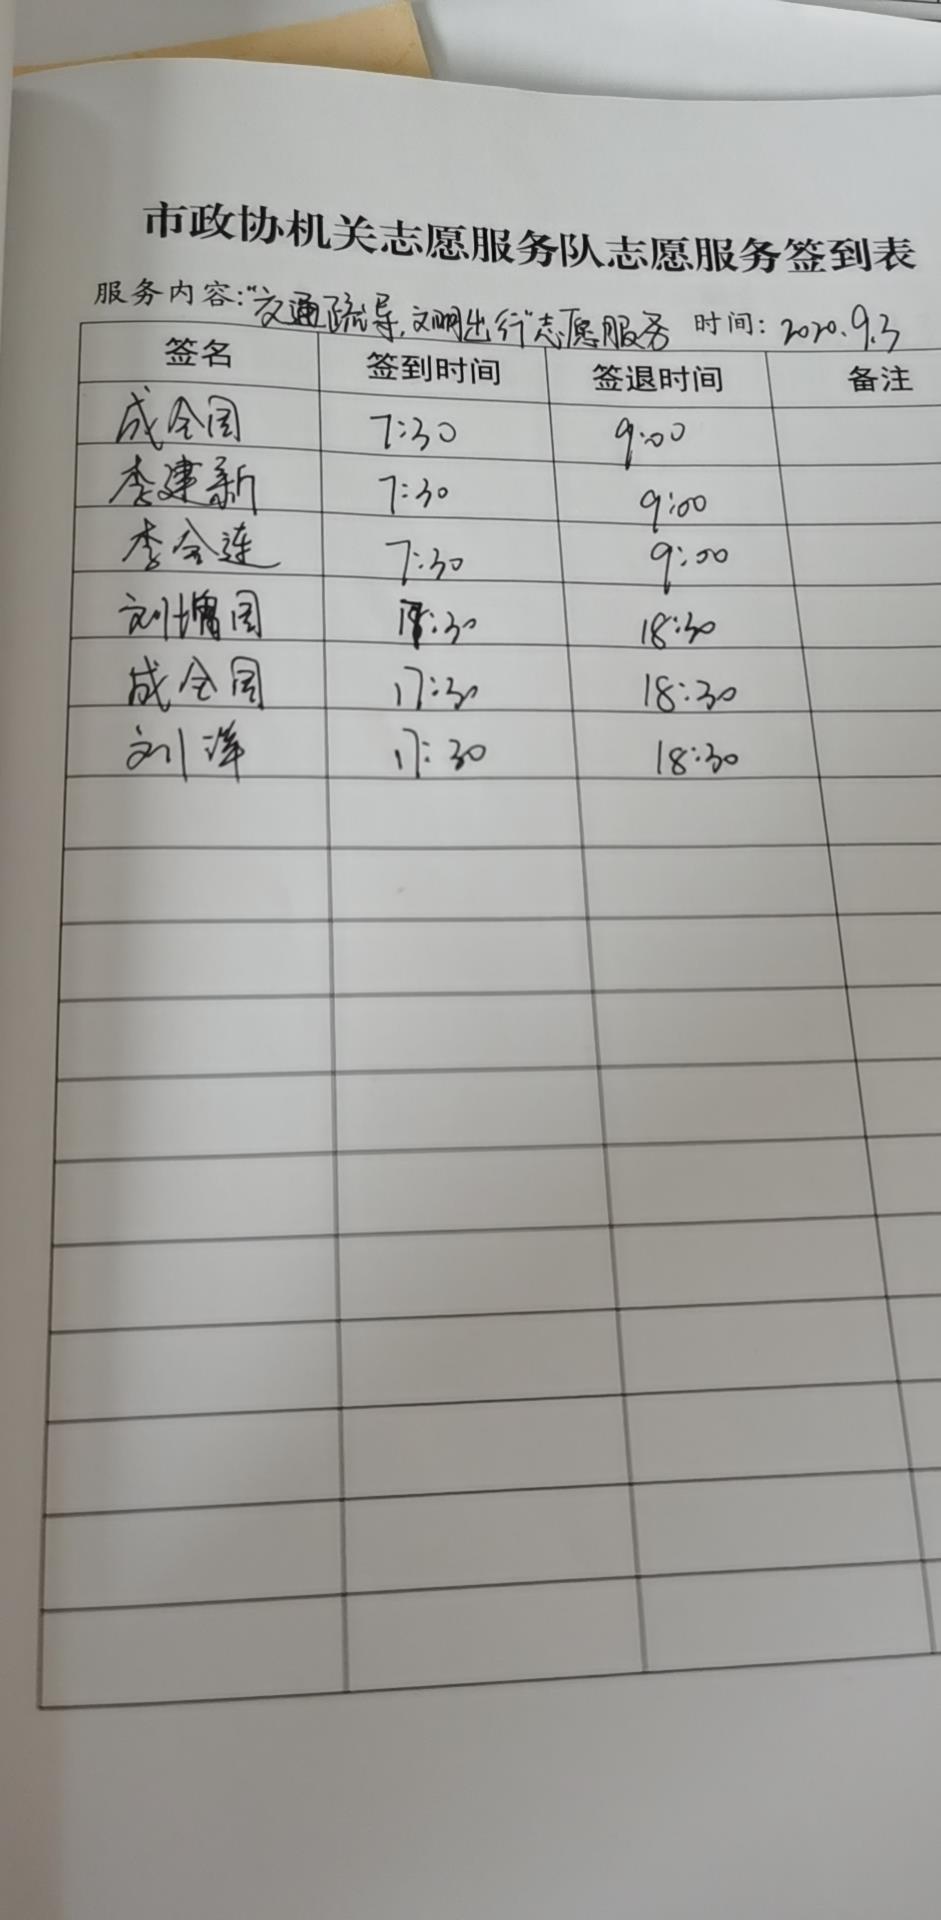 市政协机关志愿服务队志愿服务签到表
服务内容:"交通疏导,文明出行"志愿服务 时间: 2020.9.3
签名 签到时间 签退时间 备注
成全国 7:30 9:00
李建新 7:30 9:00
李全连 7:30 9:00
刘增国 17:30 18:30
成全国 17:30 18:30
刘洋 17:30 18:30